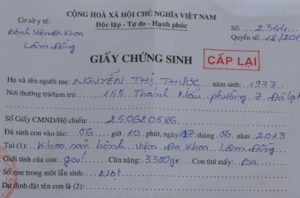 CỘNG HOÀ XÃ HỘI CHỦ NGHĨA VIỆT NAM
Độc lập - Tự do - Hạnh phúc
Cơ sở y tế:
Bệnh Viện Đa Khoa
Lâm Đồng
Số: 2344
Quyển số:
GIẤY CHỨNG SINH
CẤP LẠI
Họ và tên người mẹ: NGUYỄN THỊ năm sinh: 1977
Nơi thường trú/tạm trú: 155 Thánh Mẫu, phường 7 Đà Lạt
Số Giấy CMND/Hộ chiếu: 250620586
Đã sinh con vào lúc: 06 giờ 10 phút, ngày 17 tháng 06 năm 2013
Tại (1): Khoa sản, bệnh viện Đa Khoa Lâm Đồng
Giới tính của con: gái Cân nặng: 3300gr Con thứ mấy: Ba
Số con trong một lần sinh: Một
Dự định đặt tên con là (2):